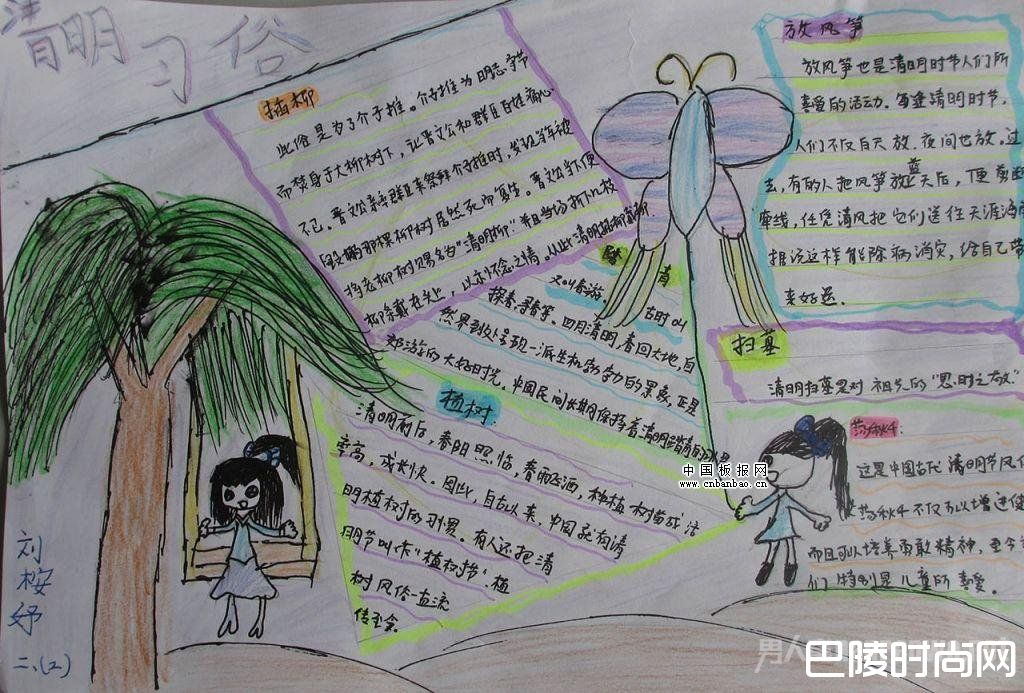 清明习俗
插柳
此俗是为了介子推。介子推为明志守节
而焚身于大柳树下，让晋文公和群臣百姓痛心
不已。晋文公亲率群臣来祭拜介子推时，发现当年被
那棵柳树居然死而复生。晋文公当下便
将老柳树赐名"清明柳"，并且当场折下几枝
柳条戴在头上，以示怀念之情，从此清明插柳
踏青
又叫春游，古时叫
探春、寻春等。四月清明，春回大地，自
然界到处呈现一派生机勃勃的景象，正是
郊游的大好时光。中国民间长期保持着清明踏青的习惯
植树
清明前后，春阳照临，春雨飞洒，种植树苗成活
率高，成长快。因此，自古以来，中国就有清
明植树的习惯。有人还把清
明节叫作"植树节"。植
树风俗一直流
传至今。
放风筝
放风筝也是清明时节人们所
喜爱的活动。每逢清明时节，
人们不仅白天放，夜间也放。过
去，有的人把风筝放蓝天后，便剪断
牵线，任凭清风把它们送往天涯海
据说这样能除病消灾，给自己带
来好运。
扫墓
清明扫墓是对祖先的"思时之敬"
荡秋千
这是中国古代清明节风俗
荡秋千不仅可以增进健
而且可以培养勇敢精神，至今
们特别是儿童所喜爱。
中国板报网
www.cnbanbao.cn
刘
桉
妤
二、(2)
男人
巴陵时尚网